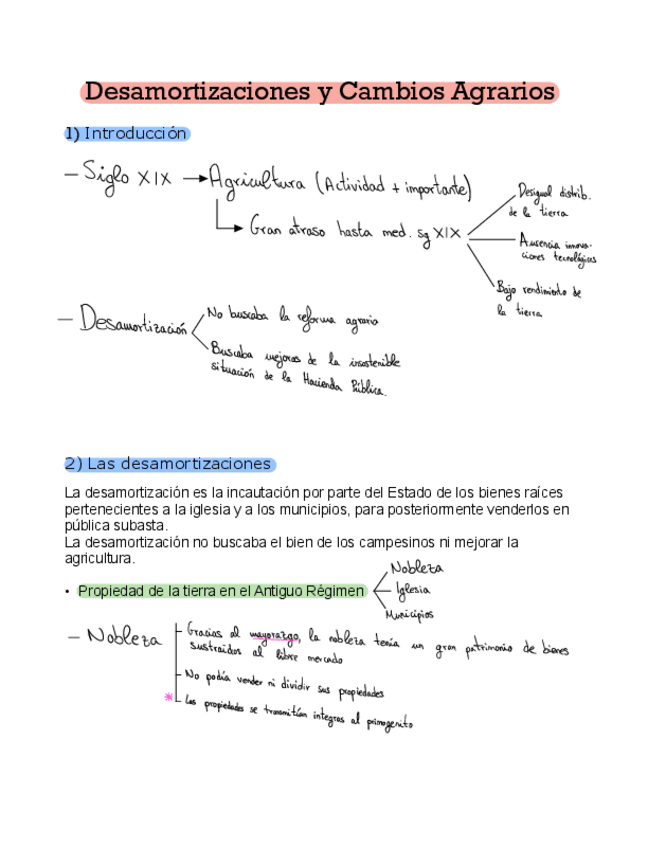 Desamortizaciones y Cambios Agrarios
1) Introducción
– Siglo XIX → Agricultura (Actividad + importante)
Gran atraso hasta med. sg XIX
Desigual distrib.
de la tierra
Ausencia innova-
ciones tecnológicas
Bajo rendimiento de
la tierra
– Desamortización
No buscaba la reforma agraria
Buscaba mejoras de la insostenible
situación de la Hacienda Pública.
2) Las desamortizaciones
La desamortización es la incautación por parte del Estado de los bienes raíces
pertenecientes a la iglesia y a los municipios, para posteriormente venderlos en
pública subasta.
La desamortización no buscaba el bien de los campesinos ni mejorar la
agricultura.
• Propiedad de la tierra en el Antiguo Régimen
Nobleza
Iglesia
Municipios
– Nobleza
Gracias al mayorazgo, la nobleza tenía un gran patrimonio de bienes
sustraidos al libre mercado
No podía vender ni dividir sus propiedades
* Las propiedades se transmitían integras al primogenito